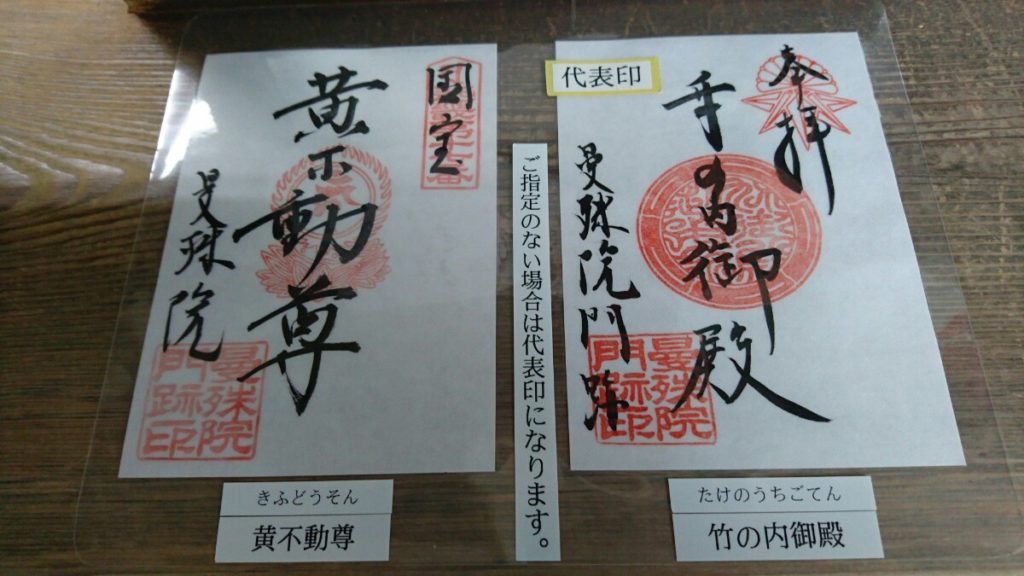 奉拝
代表印
竹の内御殿
曼殊院門跡
曼殊院
門跡印
たけのうちごてん
竹の内御殿
ご指定のない場合は代表印になります。
国宝
黄不動尊
曼殊院
曼殊院
門跡印
きふどうそん
黄不動尊